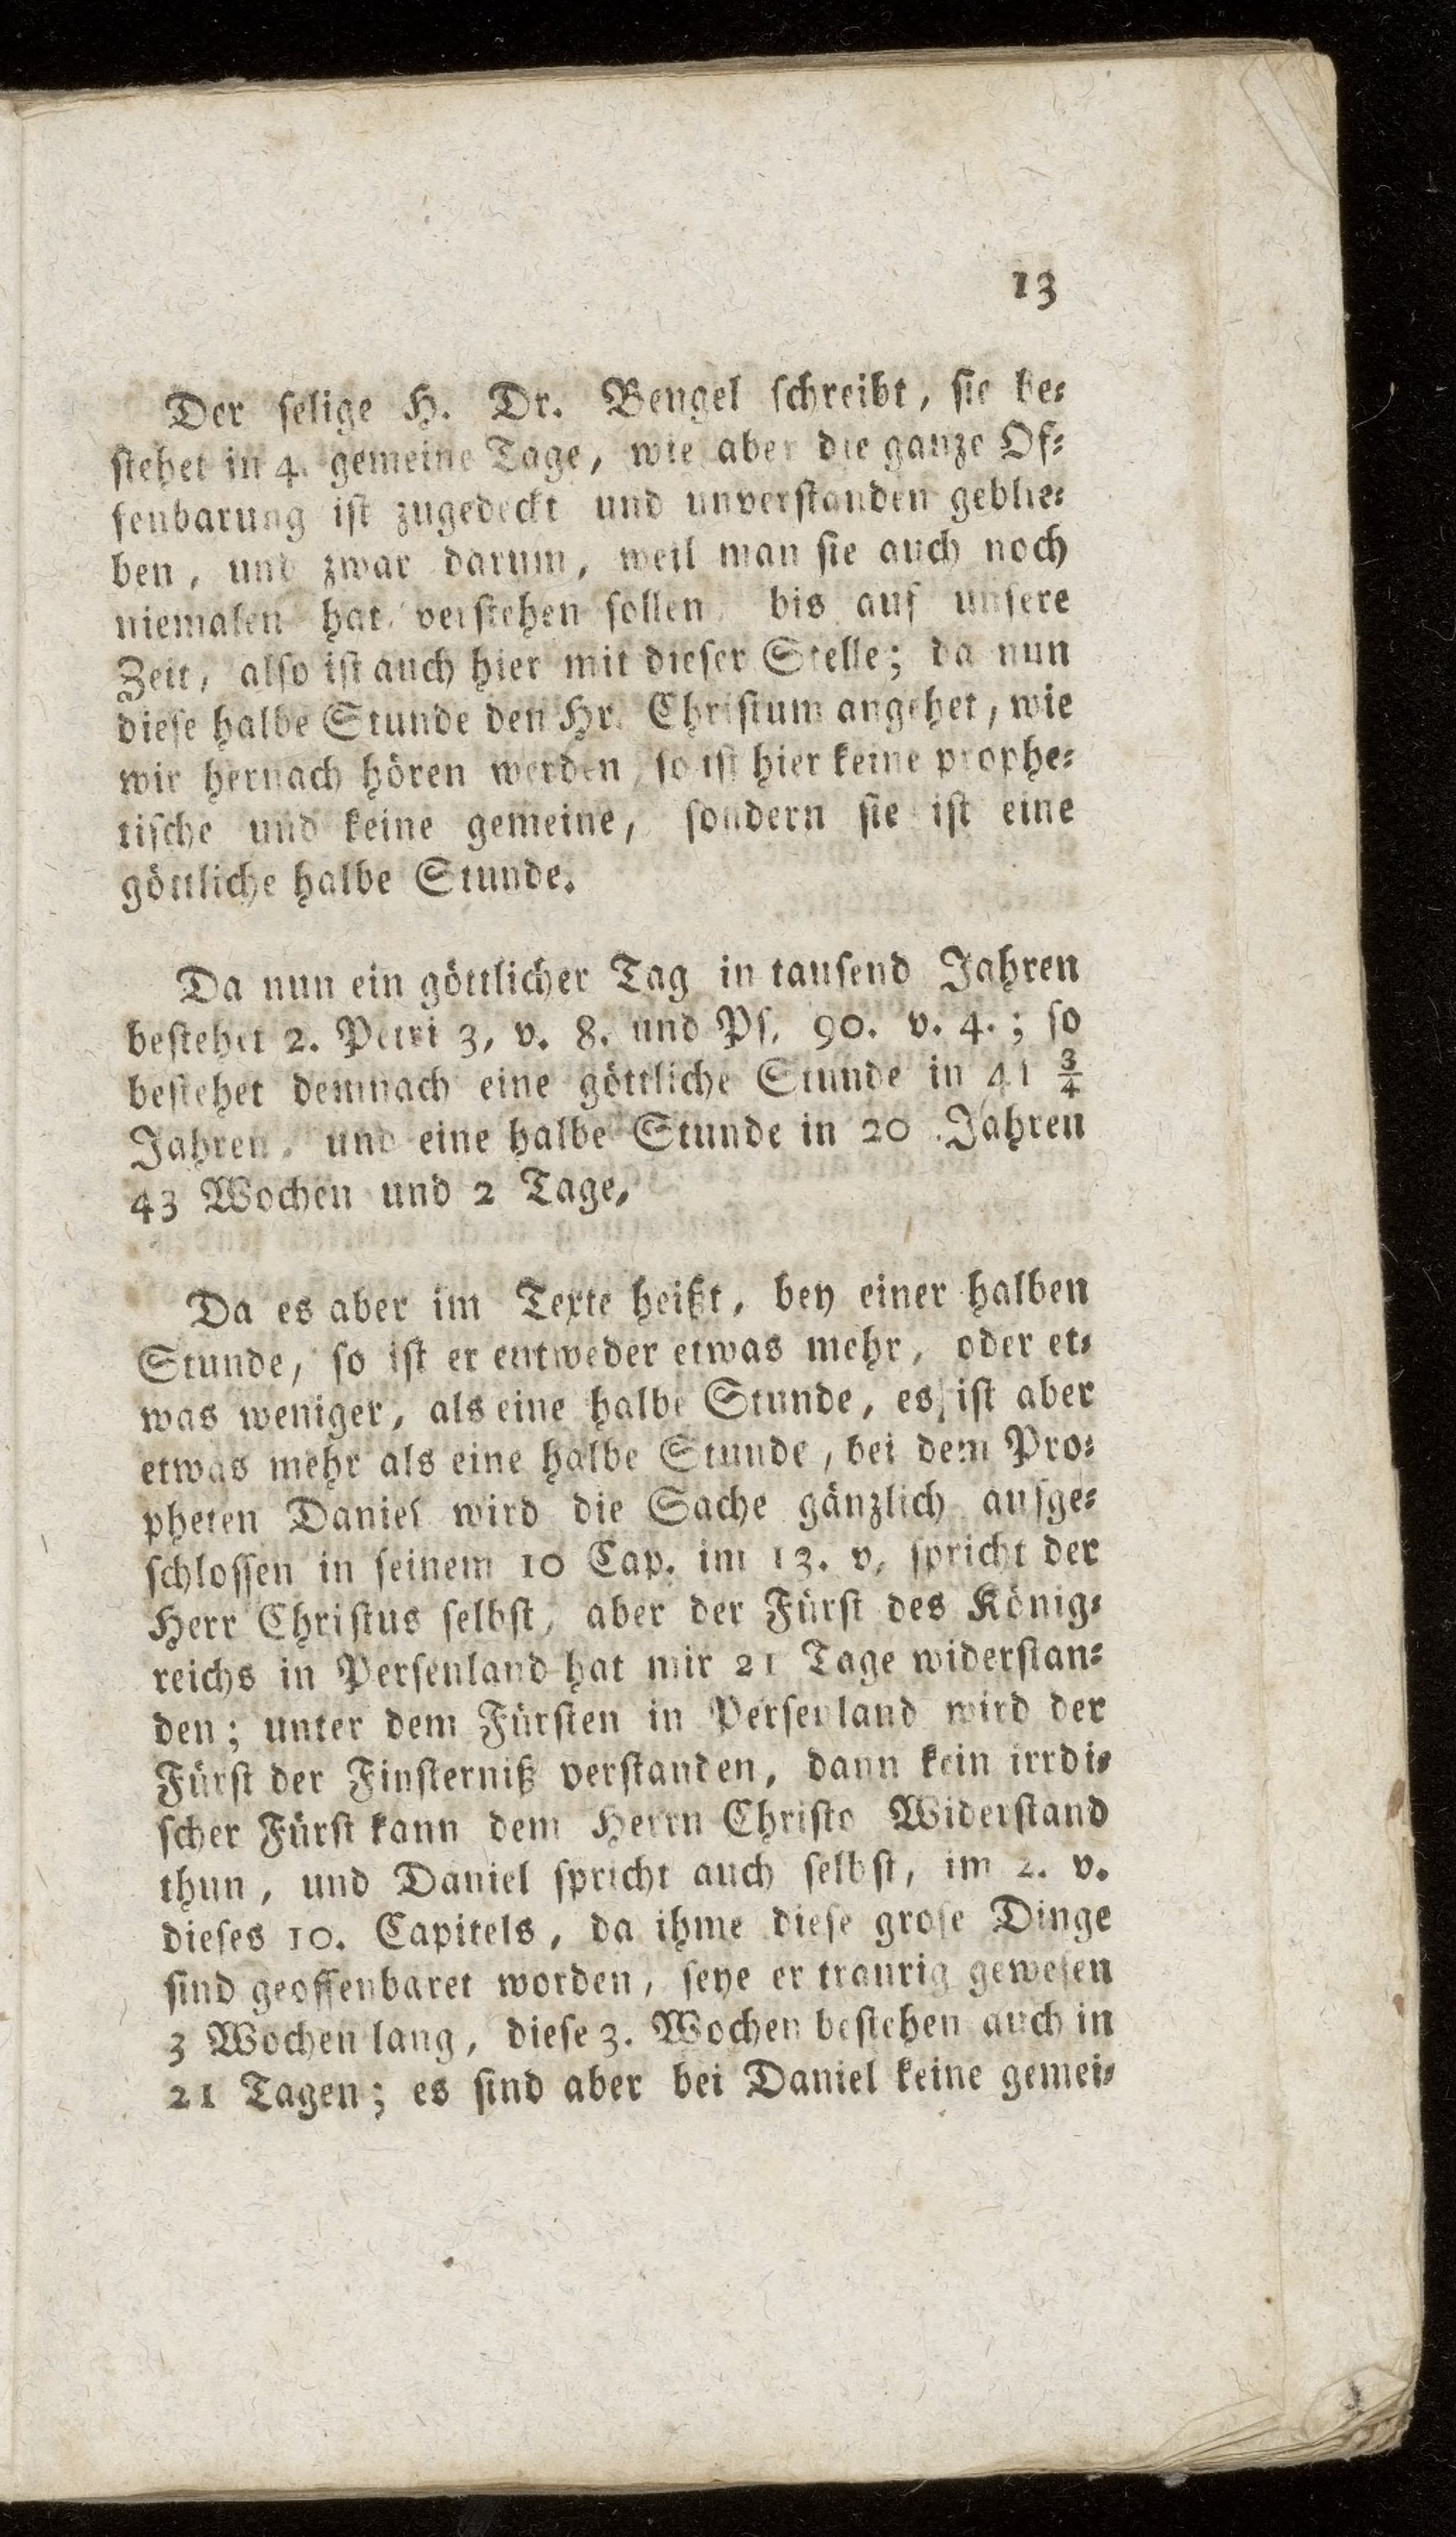 13
Der ſelige H. Dr. Bengel ſchreibt, ſie be⸗
ſtehet in 4. gemeine Tage, wie aber die ganze Of⸗
fenbarung iſt zugedeckt und unverſtanden geblie⸗
ben, und zwar darum, weil man ſie auch noch
niemalen hat verſtehen ſollen bis auf unſere
Zeit, alſo iſt auch hier mit dieſer Stelle; da nun
dieſe halbe Stunde den Hr. Chriſtum angehet, wie
wir hernach hören werden, ſo iſt hier keine prophe⸗
tiſche und keine gemeine, ſondern ſie iſt eine
göttliche halbe Stunde.
Da nun ein göttlicher Tag in tauſend Jahren
beſtehet 2. Petri 3, v. 8. und Pſ. 90. v. 4.; ſo
beſtehet demnach eine göttliche Stunde in 41 3/4
Jahren, und eine halbe Stunde in 20 Jahren
43 Wochen und 2 Tage.
Da es aber im Texte heißt, bey einer halben
Stunde, ſo iſt er entweder etwas mehr, oder et⸗
was weniger, als eine halbe Stunde, es iſt aber
etwas mehr als eine halbe Stunde, bei dem Pro⸗
pheten Daniel wird die Sache gänzlich aufge⸗
ſchloſſen in ſeinem 10 Cap. im 13. v, ſpricht der
Herr Chriſtus ſelbſt, aber der Fürſt des König⸗
reichs in Perſenland hat mir 21 Tage widerſtan⸗
den; unter dem Fürſten in Perſenland wird der
Fürſt der Finſterniß verſtanden, dann kein irrdi⸗
ſcher Fürſt kann dem Herrn Chriſto Widerſtand
thun, und Daniel ſpricht auch ſelbſt, im 2. v.
dieſes 10. Capitels, da ihme dieſe groſe Dinge
ſind geoffenbaret worden, ſeye er traurig geweſen
3 Wochen lang, dieſe 3. Wochen beſtehen auch in
21 Tagen; es ſind aber bei Daniel keine gemei⸗